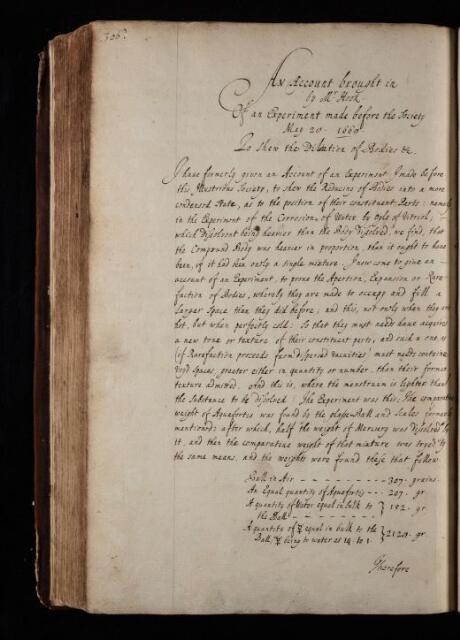 306.
An Account brought in
by Mr Hook
Of an Experiment made before the Society
May 20. 1669
To shew the Dilation of Bodies &c.
I have formerly given an Account of an Experiment I made before
this Illustrious Society, to shew the Reducing of Bodies into a more
condensed State, as to the position of their constituent Parts; namely
in the Experiment of the Corrosion of Water by Oyle of Vitriol,
which Dissolvent being heavier than the Body dissolved, we find, that
the Compound Body was heavier in proportion, then it ought to have
been, if it had been only a single mixture. I now come to give an
account of an Experiment, to prove the Apertion, Expansion or Rare-
faction of Bodies, whereby they are made to occupy and fill a
larger Space than they did before; and this, not only when they are
hot, but when perfectly cold: So that they must needs have acquired
a new tone or texture of their constituent parts, and such a one as
(if Rarefaction proceeds from dispersed vacuities) must needs contain
voyd Spaces, greater either in quantity or number, then their former
texture admitted. And this is, where the menstruum is lighter than
the Substance to be dissolved. The Experiment was this; The comparative
weight of Aquafortis was found by the glasse-Ball and Scales formerly
mentioned; after which, half the weight of Mercury was dissolved in
it, and then the comparative weight of that mixture was tryed by
the same means, and the weights were found these that follow
Ball in Air - - - - - - - - 307. grains
An Equal quantity of Aquafortis - - - 207. gr
A quantity of Water equal in bulk to } 152. gr
the Ball - - - - - - - -
A quantity of ☿ equal in bulk to the } 2128. gr
Ball, ☿ being to water as 14 to 1.
Therefore